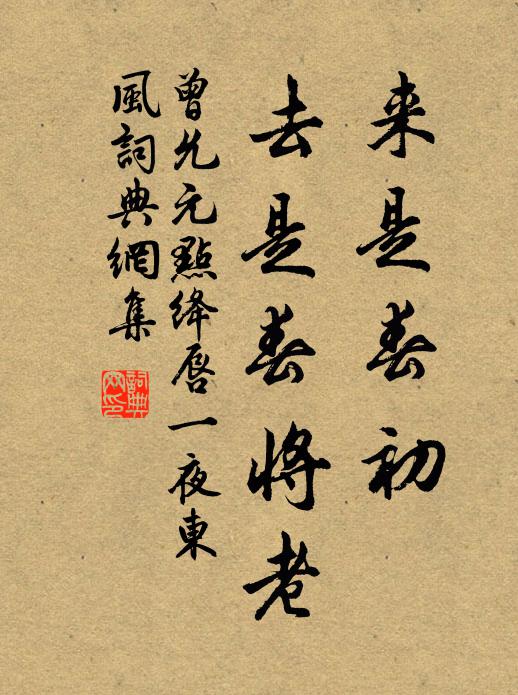 来是春初
去是春將老
曾允元點绛唇一夜東
風詞典網集
詞典
网印